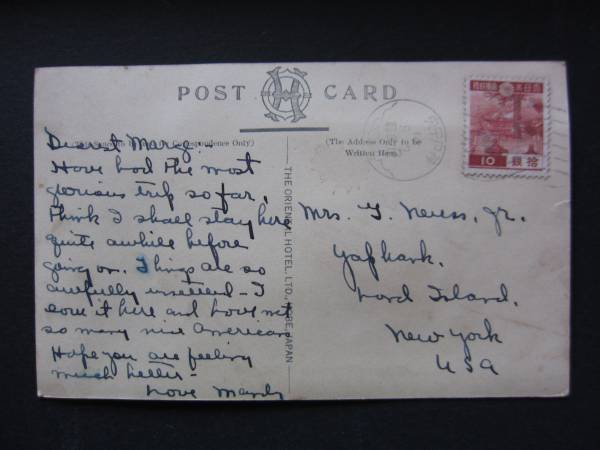 POST CARD
(The Address Only to be
Written Here)
Correspondence Only)
Dearest Marg -
Have had the most
glorious trip so far,
think I shall stay here
quite awhile before
going on. Things are so
awfully unsettled - I
love it here and have met
so many nice Americans
Hope you are feeling
much better -
Love Mardy
THE ORIENTAL HOTEL, LTD., KOBE, JAPAN
Mrs. G. Neuss, Jr.
Yaphank.
Long Island.
New York
USA
10 拾銭